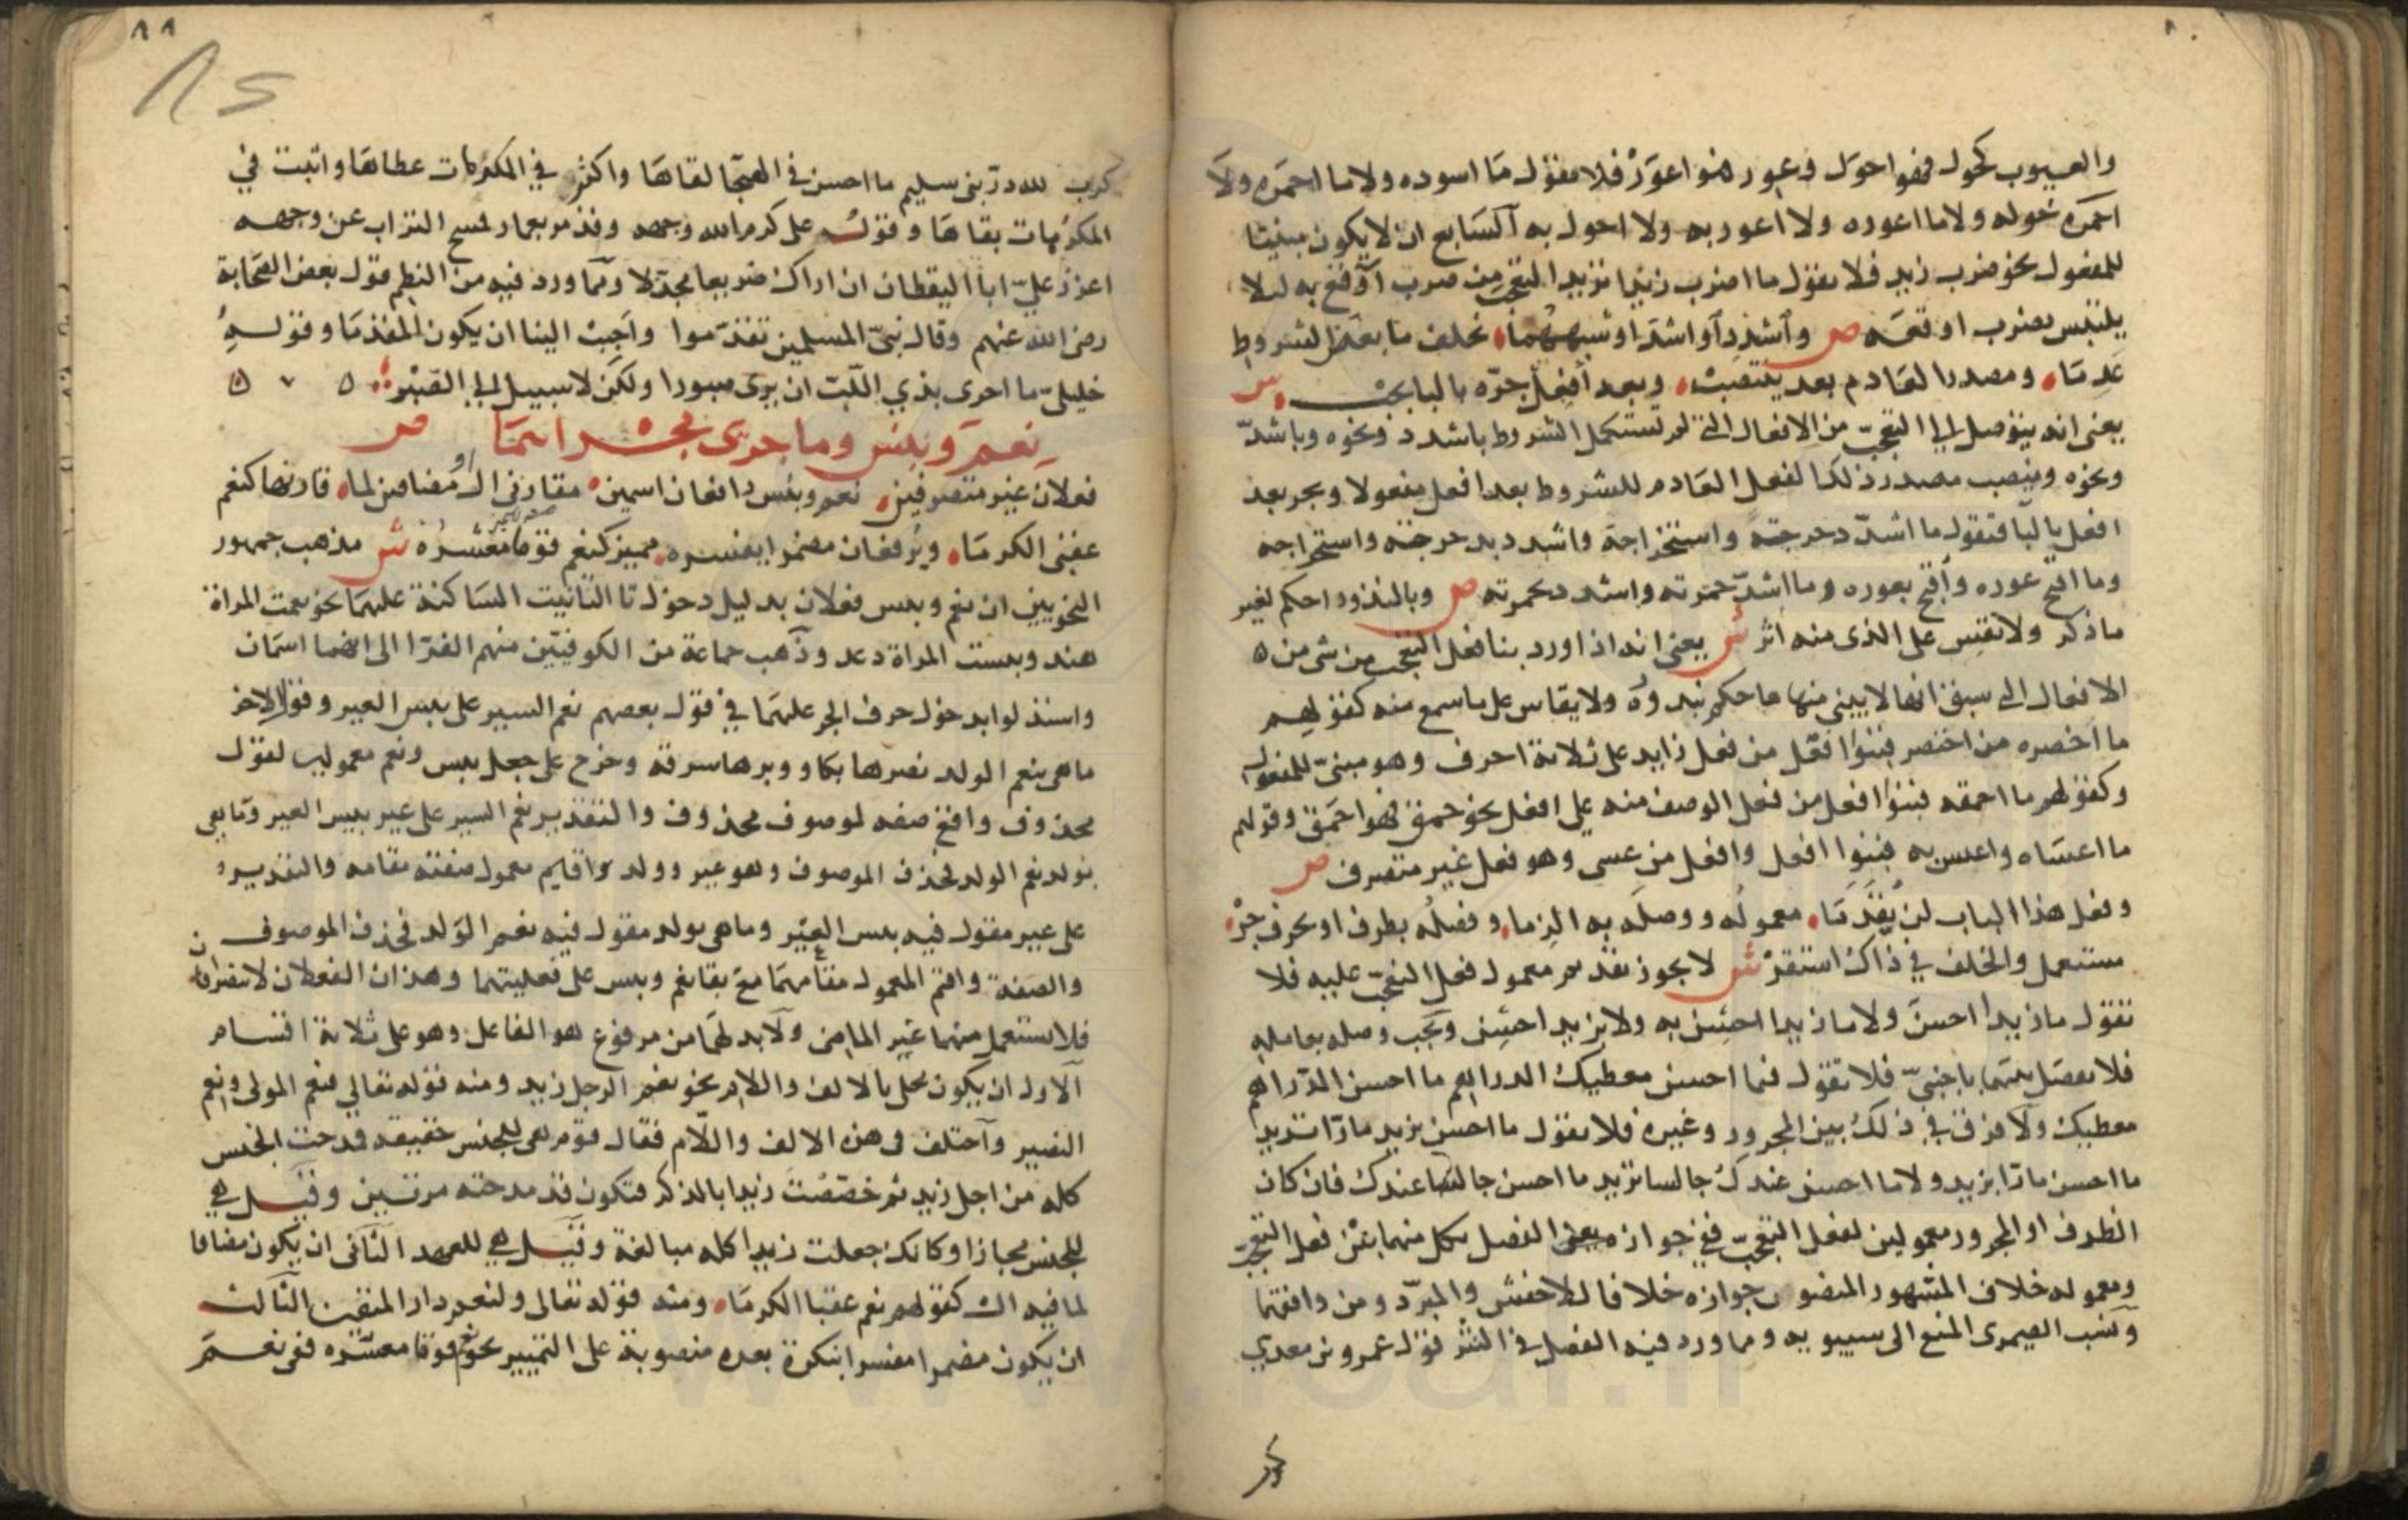 والعيوب كحول فهو احول وعور فهو اعور فلا تقول ما اسوده ولا ما احمره ولا
احمره حوله ولا ما اعوره ولا اعور به ولا احول به السابع ان لا يكون مبنيا
للمفعول نحو ضرب زيد فلا تقول ما اضرب زيدا تريد التعجب من ضرب اوقع به ليلا
يلتبس بضرب اوقعه ص وأشدد أو اشد او شبههما يخلف ما بعض الشروط
عدما ومصدر العادم بعد ينتصب وبعد أفعل جره بالبا يجب ش
يعنى انه يتوصل الى التعجب من الافعال التى لم تستكمل الشروط باشدد ونحوه وباشد
ونحوه وينصب مصدر ذلك الفعل العادم للشروط بعد افعل مفعولا ويجر بعد
افعل بالبا فتقول ما اشد دحرجته واستخراجه واشدد بدحرجته واستخراجه
وما اقبح عوره وأقبح بعوره وما اشد حمرته واشدد بحمرته ص وبالندور احكم لغير
ما ذكر ولا تقس على الذى منه اثر ش يعنى انه اذا ورد بنا فعل التعجب من شى من
الافعال التى سبق انها لا يبنى منها حكم بندوره ولا يقاس على ما سمع منه كقولهم
ما اخصره من اختصر فبنوا افعل من فعل زايد على ثلاثة احرف وهو مبنى للمفعول
وكقولهم ما احمقه فبنوا افعل من فعل الوصف منه على افعل نحو حمق فهو احمق وقولهم
ما اعساه واعس به فبنوا افعل وافعل من عسى وهو فعل غير متصرف ص
وفعل هذا الباب لن يقدما معموله ووصله به الزما وفصله بظرف او بحرف جر
مستعمل والخلف في ذاك استقر ش لا يجوز تقديم معمول فعل التعجب عليه فلا
تقول ما زيدا احسن ولا ما زيدا احسن به ولا بزيد احسن ويجب وصله بعامله
فلا يفصل بينهما باجنبى فلا تقول فما احسن معطيك الدراهم ما احسن الدراهم
معطيك ولا فرق في ذلك بين المجرور وغيره فلا تقول ما احسن بزيد مارا تريد
ما احسن مارا بزيد ولا ما احسن عندك جالسا تريد ما احسن جالسا عندك فان كان
الظرف او المجرور معمولين لفعل التعجب ففي جواز الفصل بكل منهما بين فعل التعجب
ومعموله خلاف المشهور المنصور جوازه خلافا للاخفش والمبرد ومن وافقهما
ونسب الصيمرى المنع الى سيبويه ومما ورد فيه الفصل في النثر قول عمرو بن معدي
كرب لله در بنى سليم ما احسن في الهيجا لقاها واكثر في المكرمات عطاها واثبت في
المكرمات بقاها وقول على كرم الله وجهه وقد مر بعمار فمسح التراب عن وجهه
اعزز علي ابا اليقظان ان اراك صريعا مجدلا ومما ورد فيه من النظم قول بعض الصحابة
رضى الله عنهم وقال نبى المسلمين تقدموا واحبب الينا ان يكون المقدما وقوله
خليلى ما احرى بذي اللب ان يرى صبورا ولكن لا سبيل الى الصبر
نعم وبئس وما جرى مجراهما ص
فعلان غير متصرفين نعم وبئس رافعان اسمين مقارنى ال او مضافين لما قارنها كنعم
عقبى الكرما ويرفعان مضمرا يفسره مميز كنعم قوما معشره ش مذهب جمهور
النحويين ان نعم وبيس فعلان بدليل دخول تا التانيث الساكنة عليهما نحو نعمت المراة
هند وبيست المراة دعد وذهب جماعة من الكوفيين منهم الفرا الى انهما اسمان
واستدلوا بدخول حرف الجر عليهما في قول بعضهم نعم السير على بيس العير وقول الاخر
ما هى بنعم الولد نصرها بكا وبرها سرقة وخرج على جعل بيس ونعم معمولين لقول
محذوف واقع صفه لموصوف محذوف والتقدير نعم السير على عير بيس العير وما هى
بولد نعم الولد فحذف الموصوف وهو عير وولد واقيم معمول صفته مقامه والتقدير
على عير مقول فيه بيس العير وما هى بولد مقول فيه نعم الولد فحذف الموصوف
والصفة واقيم المعمول مقامهما مع بقا نعم وبيس على فعليتهما وهذان الفعلان لا يتصرفان
فلا يستعمل منهما غير الماضى ولا بد لهما من مرفوع هو الفاعل وهو على ثلاثة اقسام
الاول ان يكون محلى بالالف واللام نحو نعم الرجل زيد ومنه قوله تعالى نعم المولى ونعم
النصير واختلف فى هذه الالف واللام فقال قوم هى للجنس حقيقه فمدحت الجنس
كله من اجل زيد ثم خصصت زيدا بالذكر فتكون قد مدحته مرتين وقيل هي
للجنس مجازا وكانك جعلت زيدا كله مبالغة وقيل هي للعهد الثانى ان يكون مضافا
لما فيه ال كقولهم نعم عقبا الكرما ومنه قوله تعالى ولنعم دار المتقين الثالث
ان يكون مضمرا مفسرا بنكرة بعده منصوبة على التمييز نحو نعم قوما معشره ففى نعم